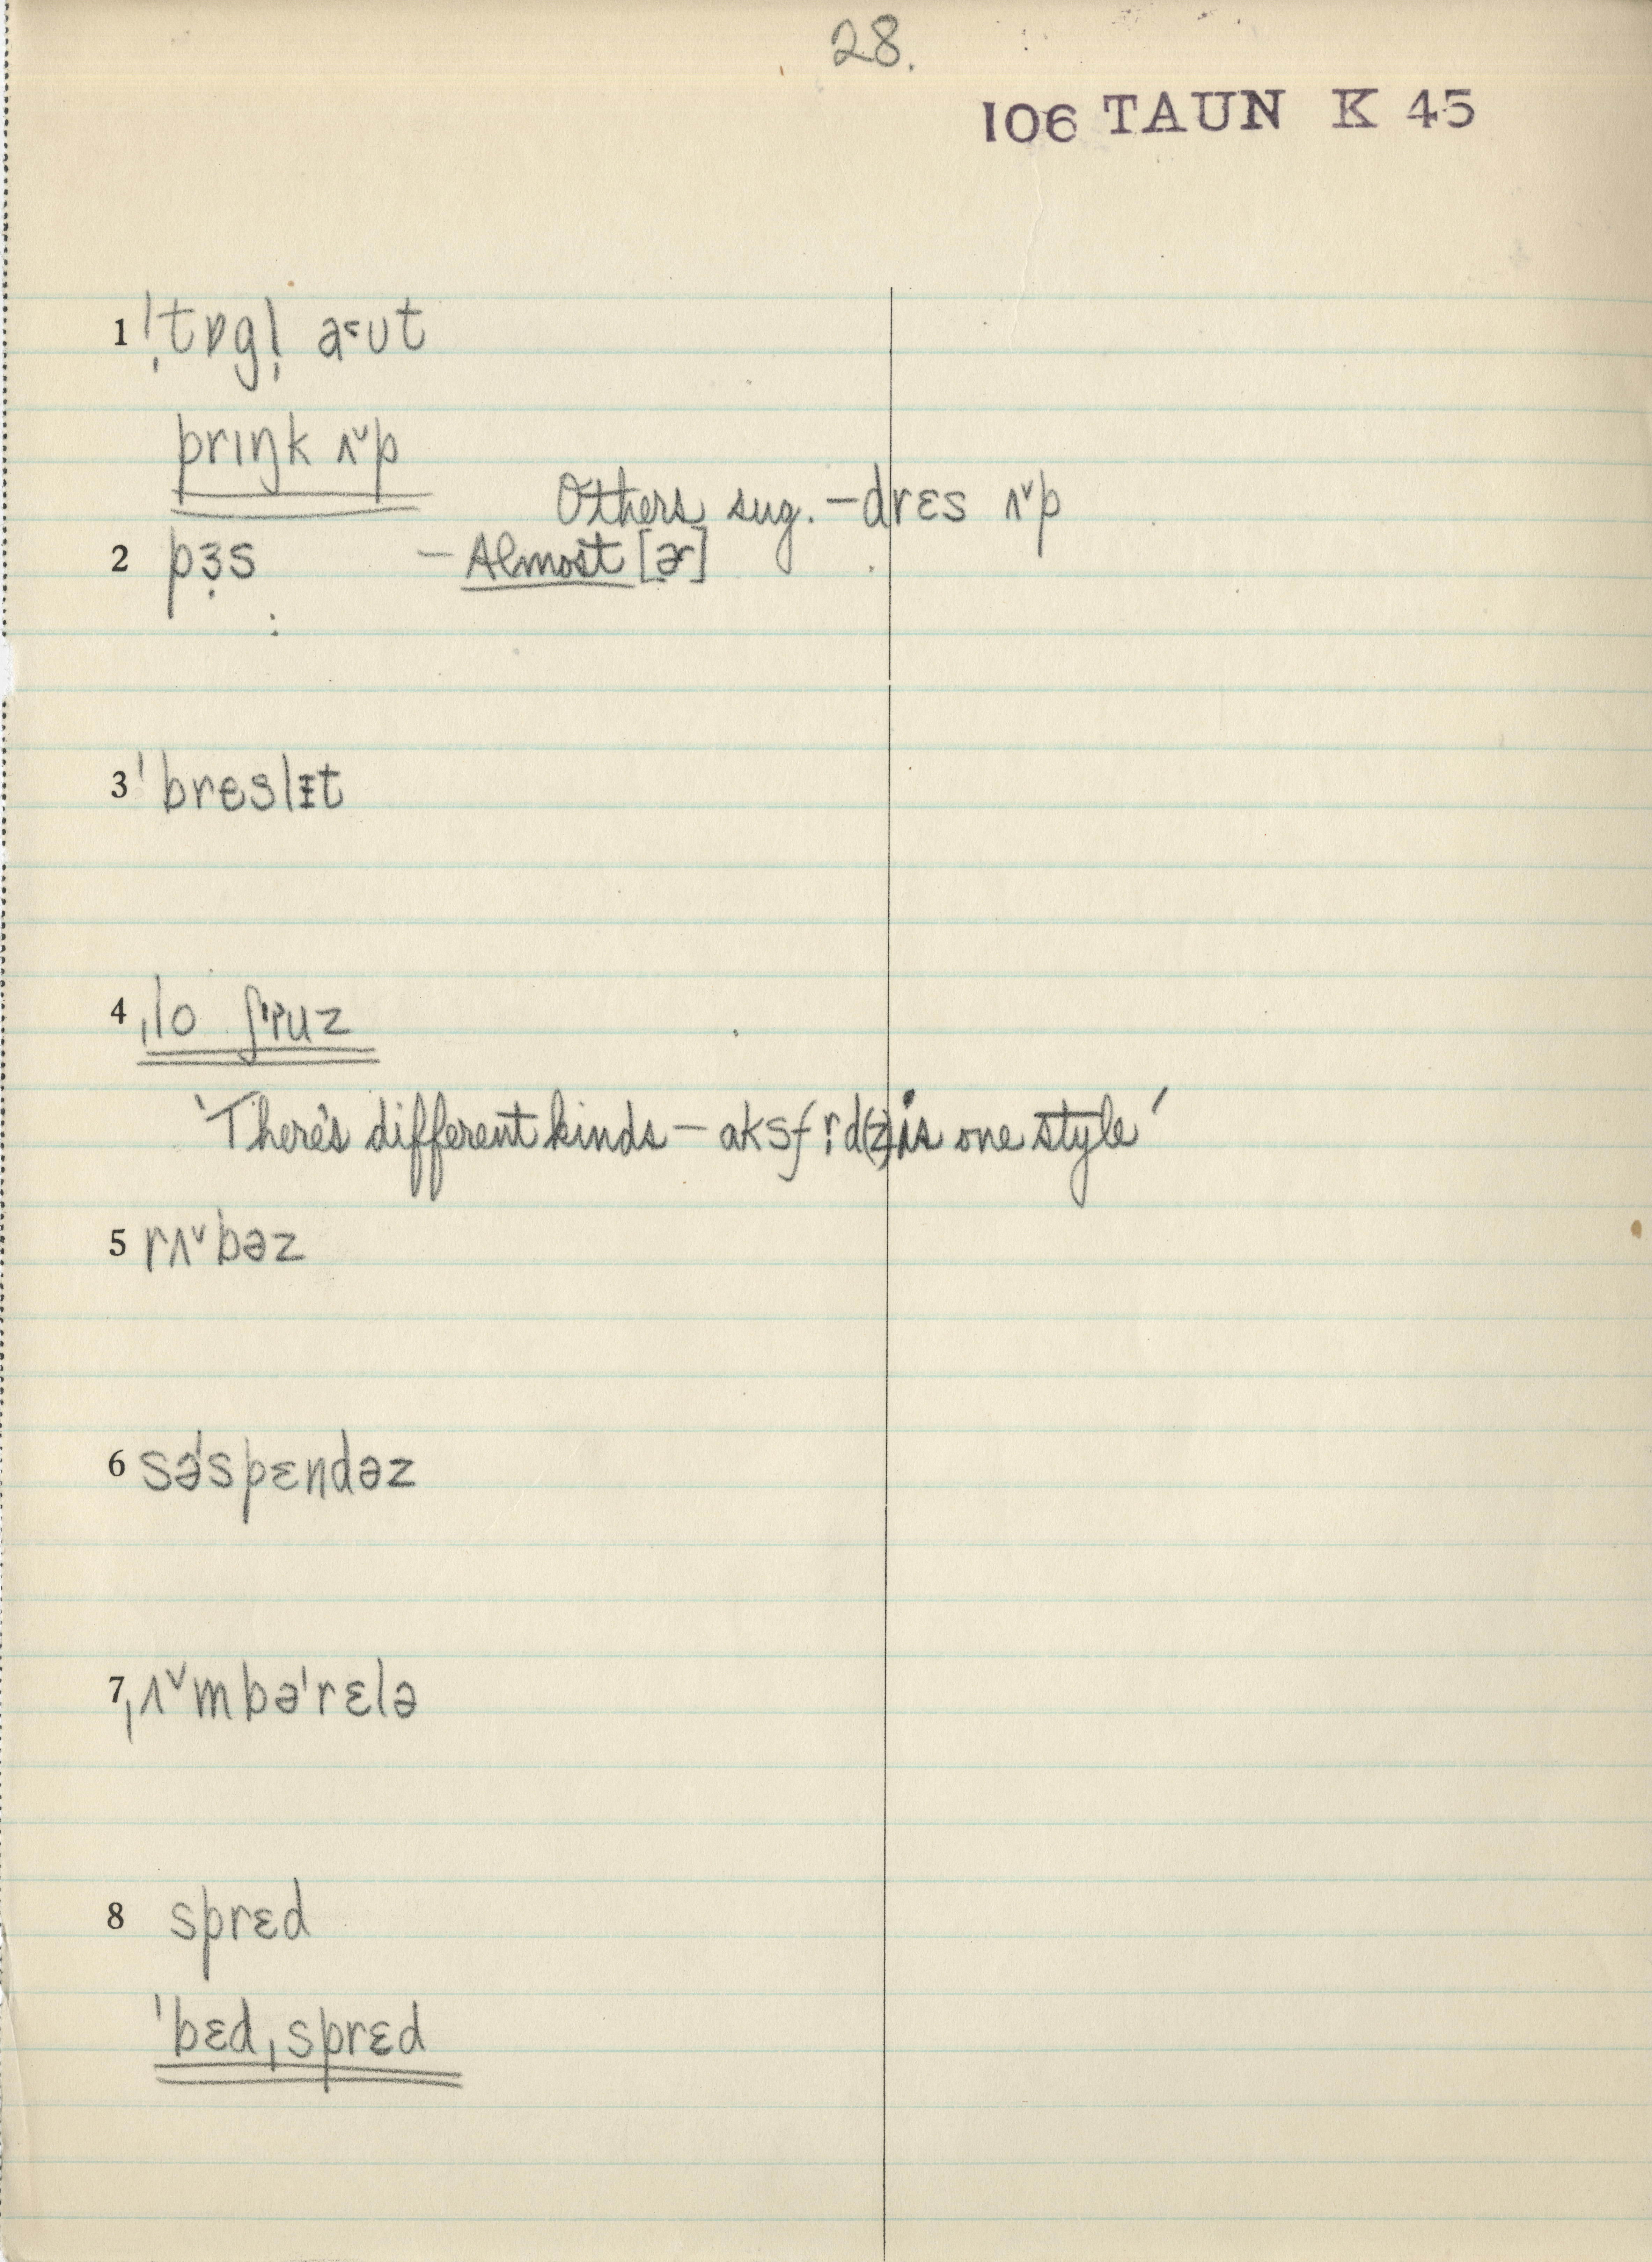 28.
106 TAUN K 45
1 ˈ̩tɒgl̩ a˂ʊt
prɪŋk ʌˇp
Others sug. – drɛs ʌˇp
2 pɜ̣s – Almost [ɚ]
3 ˈbreslɪ̵t
4 ˌlo ʃˈruz
'There's different kinds – aksf r̩d(z) is one style'
5 rʌˇbəz
6 səˈspɛndəz
7 ˌʌˇmbəˈrɛlə
8 sprɛd
ˈbɛdˌsprɛd